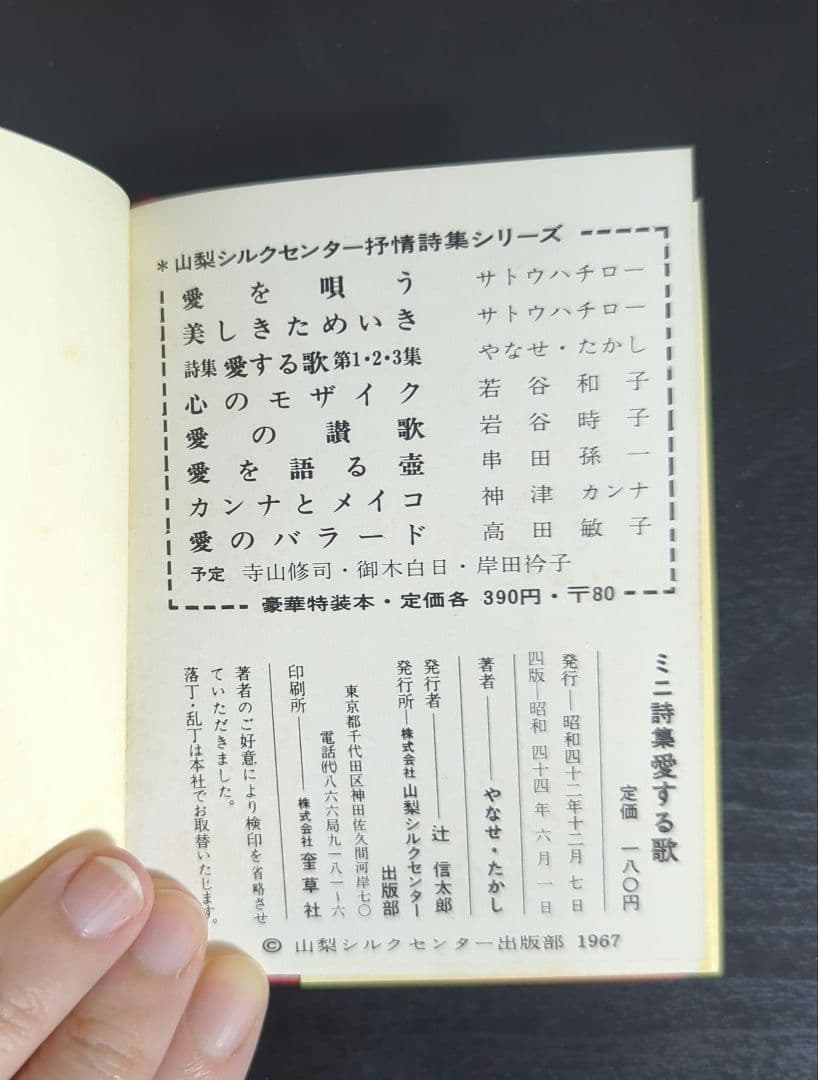 ＊山梨シルクセンター抒情詩集シリーズ
愛を唄う サトウハチロー
美しきためいき サトウハチロー
詩集 愛する歌 第1・2・3集 やなせ・たかし
心のモザイク 若谷和子
愛の讃歌 岩谷時子
愛を語る壺 串田孫一
カンナとメイコ 神津カンナ
愛のバラード 高田敏子
予定 寺山修司・御木白日・岸田衿子
豪華特装本・定価各 390円・〒80
ミニ詩集愛する歌
定価 一八〇円
発行―昭和四十二年十二月七日
四版―昭和四十四年六月一日
著者―――やなせ・たかし
発行者―――辻信太郎
発行所―株式会社山梨シルクセンター
出版部
東京都千代田区神田佐久間河岸七〇
電話(代)八六六局九一八一〜六
印刷所―――株式会社 奎草社
著者のご好意により検印を省略させ
ていただきました。
落丁・乱丁は本社でお取替いたします。
© 山梨シルクセンター出版部 1967